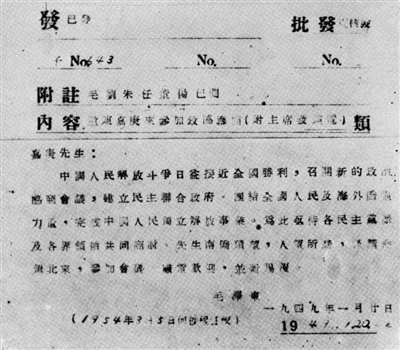 發 已發 批發
No. 643 No. No.
附註 毛劉朱任董楊已閱
內容 邀陳嘉庚來參加政協 類
嘉庚先生：
中國人民解放斗爭日益接近全國勝利，召開新的政治
協商會議，建立民主聯合政府，團結全國人民及海外僑胞
力量，完成中國人民獨立解放事業。為此亟待各民主黨派
及各界領袖共同商討。先生南僑碩望，人望所歸，
北來，參加會議。
毛澤東
一九四九年一月廿日
(1954年3 5日
19 49 1 20